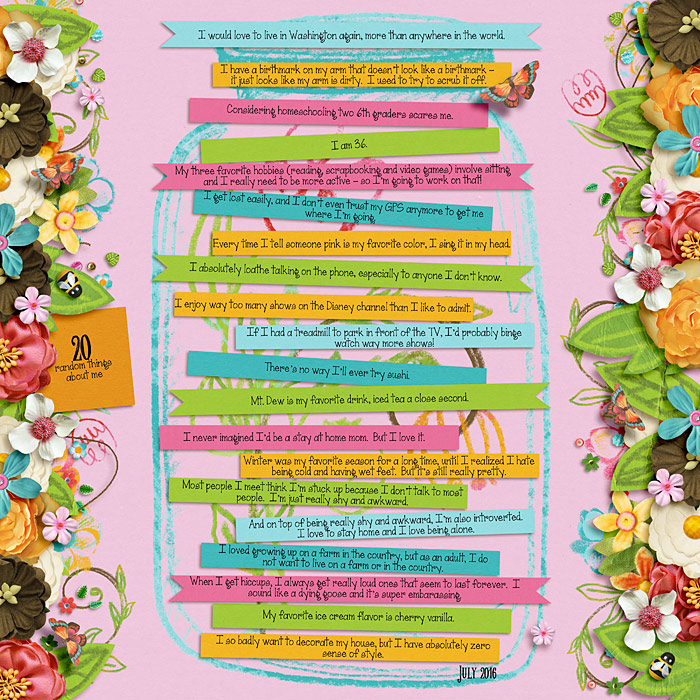 I would love to live in Washington again, more than anywhere in the world.
I have a birthmark on my arm that doesn't look like a birthmark -
it just looks like my arm is dirty. I used to try to scrub it off.
Considering homeschooling two 6th graders scares me.
I am 36.
My three favorite hobbies (reading, scrapbooking and video games) involve sitting,
and I really need to be more active - so I'm going to work on that!
I get lost easily, and I don't even trust my GPS anymore to get me
where I'm going.
Every time I tell someone pink is my favorite color, I sing it in my head.
I absolutely loathe talking on the phone, especially to anyone I don't know.
I enjoy way too many shows on the Disney channel than I like to admit.
If I had a treadmill to park in front of the TV, I'd probably binge
watch way more shows!
20
random things
about me
There's no way I'll ever try sushi.
Mt. Dew is my favorite drink, iced tea a close second.
I never imagined I'd be a stay at home mom. But I love it.
Winter was my favorite season for a long time, until I realized I hate
being cold and having wet feet. But it's still really pretty.
Most people I meet think I'm stuck up because I don't talk to most
people. I'm just really shy and awkward.
And on top of being really shy and awkward, I'm also introverted.
I love to stay home and I love being alone.
I loved growing up on a farm in the country, but as an adult, I do
not want to live on a farm or in the country.
When I get hiccups, I always get really loud ones that seem to last forever. I
sound like a dying goose and it's super embarassing.
My favorite ice cream flavor is cherry vanilla.
I so badly want to decorate my house, but I have absolutely zero
sense of style.
July 2016